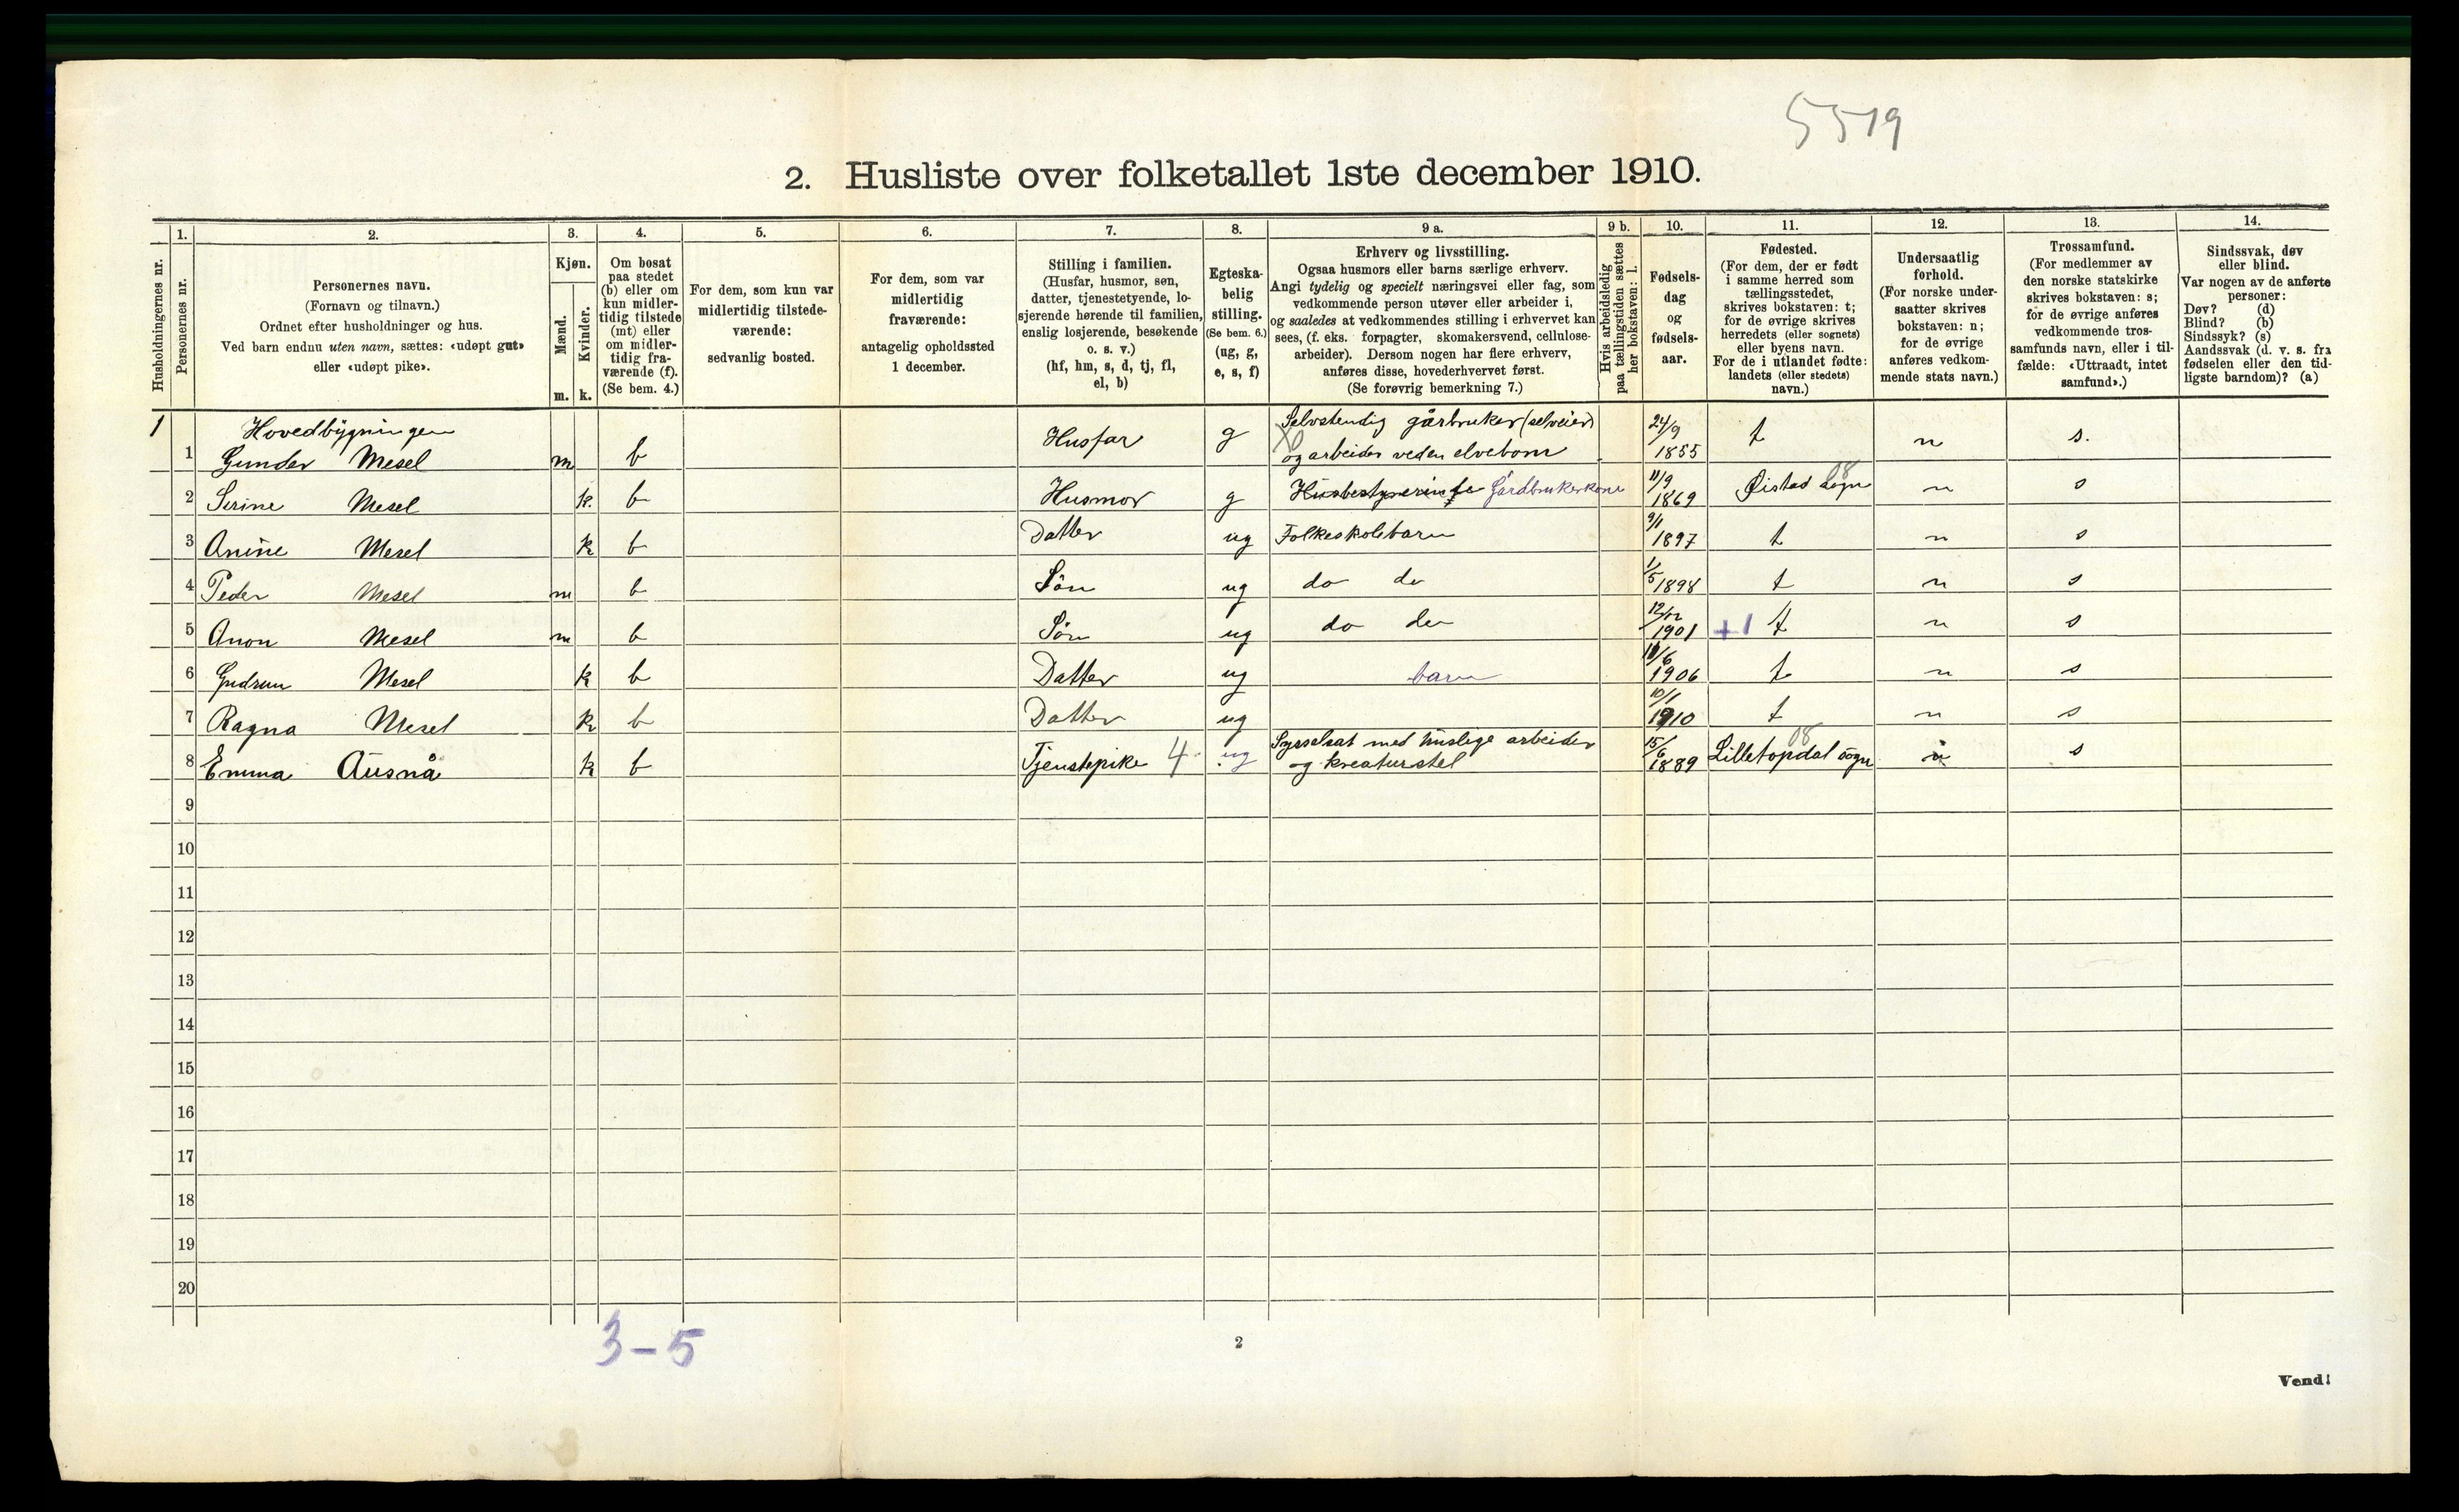 5519
2. Husliste over folketallet 1ste december 1910.
Husholdningernes nr.
1.
Personernes nr.
2.
Personernes navn.
(Fornavn og tilnavn.)
Ordnet efter husholdninger og hus.
Ved barn endnu uten navn, sættes: «udøpt gut»
eller «udøpt pike».
3.
Kjøn.
Mænd.
Kvinder.
m. k.
4.
Om bosat
paa stedet
(b) eller om
kun midler-
tidig tilstede
(mt) eller
om midler-
tidig fra-
værende (f).
(Se bem. 4.)
5.
For dem, som kun var
midlertidig tilstede-
værende:
sedvanlig bosted.
6.
For dem, som var
midlertidig
fraværende:
antagelig opholdssted
1 december.
7.
Stilling i familien.
(Husfar, husmor, søn,
datter, tjenestetyende, lo-
sjerende hørende til familien,
enslig losjerende, besøkende
o. s. v.)
(hf, hm, s, d, tj, fl,
el, b)
8.
Egteska-
belig
stilling.
(Se bem. 6.)
(ug, g,
e, s, f)
9 a.
Erhverv og livsstilling.
Ogsaa husmors eller barns særlige erhverv.
Angi tydelig og specielt næringsvei eller fag, som
vedkommende person utøver eller arbeider i,
og saaledes at vedkommendes stilling i erhvervet kan
sees, (f. eks. forpagter, skomakersvend, cellulose-
arbeider). Dersom nogen har flere erhverv,
anføres disse, hovederhvervet først.
(Se forøvrig bemerkning 7.)
9 b.
Hvis arbeidsledig
paa tællingstiden sættes
her bokstaven: l.
10.
Fødsels-
dag
og
fødsels-
aar.
11.
Fødested.
(For dem, der er født
i samme herred som
tællingsstedet,
skrives bokstaven: t;
for de øvrige skrives
herredets (eller sognets)
eller byens navn.
For de i utlandet fødte:
landets (eller stedets)
navn.)
12.
Undersaatlig
forhold.
(For norske under-
saatter skrives
bokstaven: n;
for de øvrige
anføres vedkom-
mende stats navn.)
13.
Trossamfund.
(For medlemmer av
den norske statskirke
skrives bokstaven: s;
for de øvrige anføres
vedkommende tros-
samfunds navn, eller i til-
fælde: «Uttraadt, intet
samfund».)
14.
Sindssvak, døv
eller blind.
Var nogen av de anførte
personer:
Døv? (d)
Blind? (b)
Sindssyk? (s)
Aandssvak (d. v. s. fra
fødselen eller den tid-
ligste barndom)? (a)
1 Hovedbygningen
1 Gunder Mesel m b Husfar g Selvstendig gårbruker (selveier) og arbeider veden elvebom 24/9 1855 t n s.
2 Serine Mesel k. b Husmor g Husbestyrerinde Gårdbrukerkone 11/9 1869 Øistad sogn 08 n s
3 Anine Mesel k b Datter ug Folkeskolebarn 9/1 1897 t n s
4 Peder Mesel m b Søn ug do do 1/5 1898 t n s
5 Anon Mesel m b Søn ug do do 12/12 1901 +1 t n s
6 Gudrun Mesel k b Datter ug barn 11/6 1906 t n s
7 Ragna Mesel k b Datter ug 10/1 1910 t n s
8 Emma Ausnå k b Tjenstepike 4 ug Sysselsat med huslige arbeider og kreaturstel 15/6 1889 Lilletopdal sogn 08 n s
9
10
11
12
13
14
15
16
17
18
19
20
3-5
2
Vend!